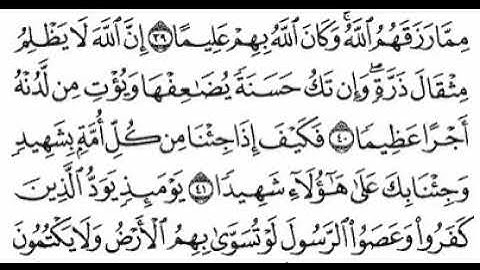 مِمَّا رَزَقَهُمُ ٱللَّهُۚ وَكَانَ ٱللَّهُ بِهِمْ عَلِيمًا ٣٩ إِنَّ ٱللَّهَ لَا يَظْلِمُ
مِثْقَالَ ذَرَّةٍۖ وَإِن تَكُ حَسَنَةً يُضَـٰعِفْهَا وَيُؤْتِ مِن لَّدُنْهُ
أَجْرًا عَظِيمًا ٤٠ فَكَيْفَ إِذَا جِئْنَا مِن كُلِّ أُمَّةٍۭ بِشَهِيدٍ
وَجِئْنَا بِكَ عَلَىٰ هَـٰٓؤُلَآءِ شَهِيدًا ٤١ يَوْمَئِذٍ يَوَدُّ ٱلَّذِينَ
كَفَرُوا۟ وَعَصَوُا۟ ٱلرَّسُولَ لَوْ تُسَوَّىٰ بِهِمُ ٱلْأَرْضُ وَلَا يَكْتُمُونَ